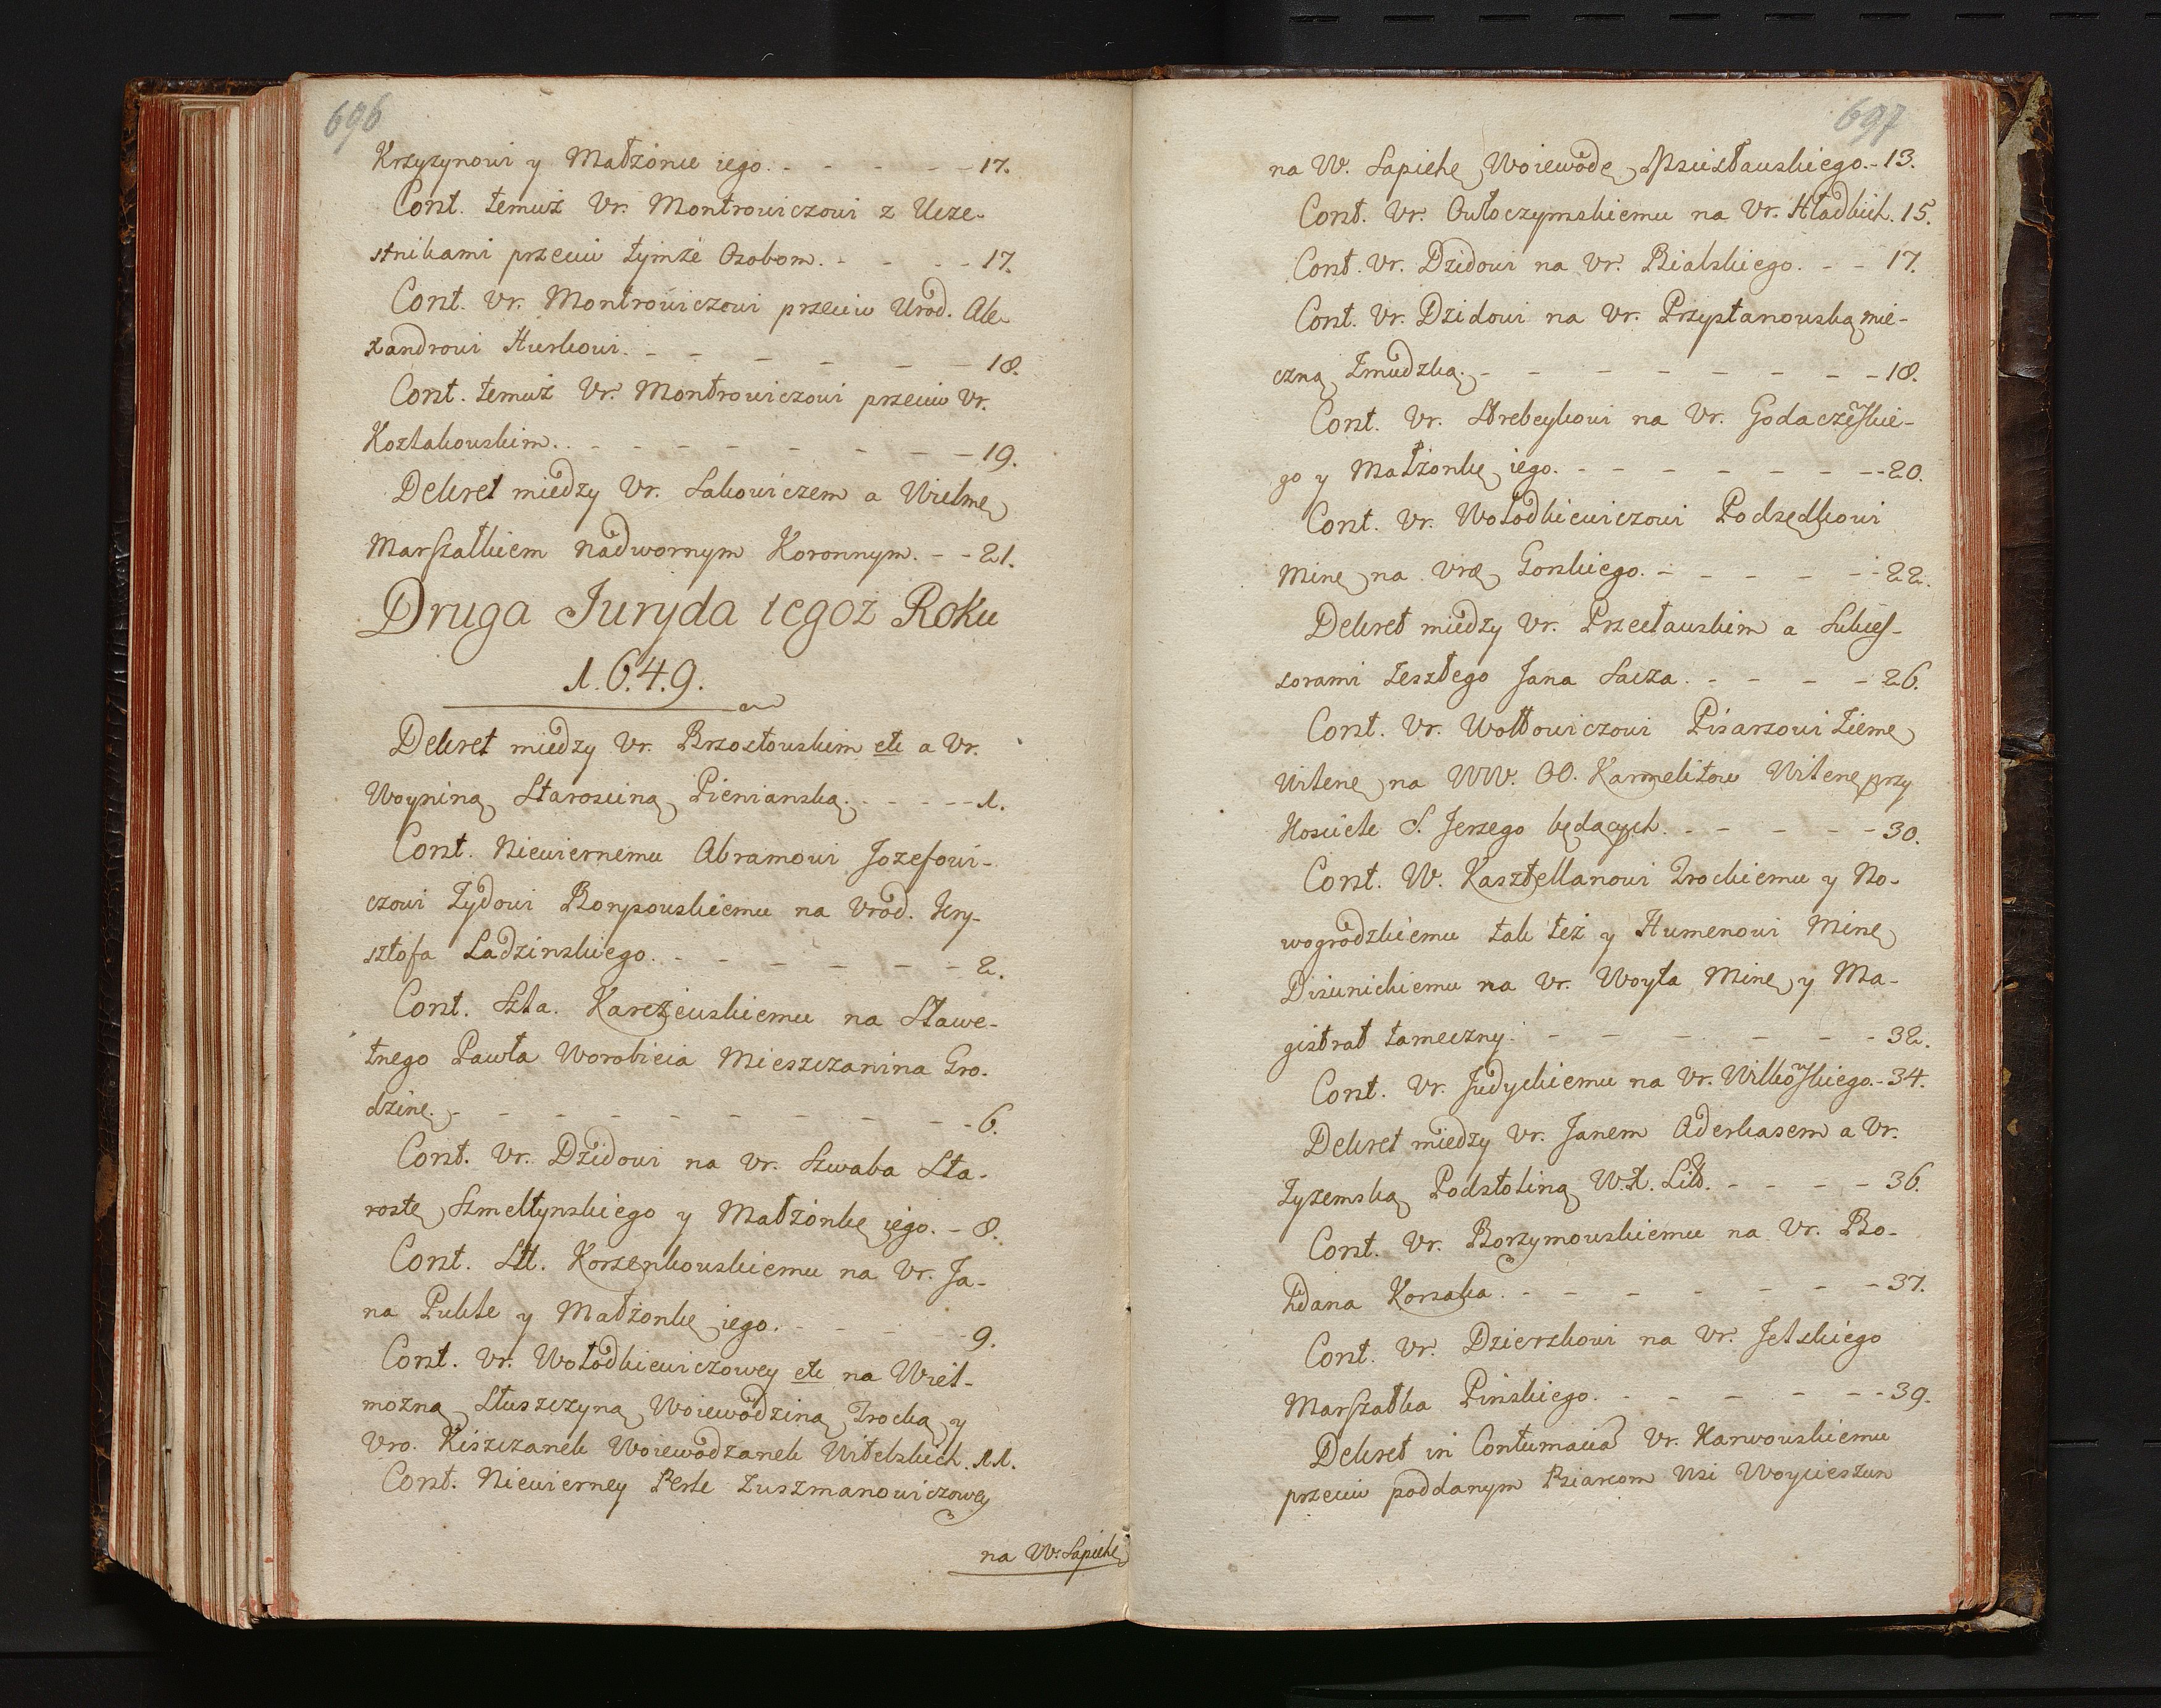 696
Krzyzynowi y Małżonce iego. - - - - - 17.
Cont. temuż Vr. Montrowiczowi z Ucze-
stnikami przeciw tymże Osobom. - - - - 17.
Cont. Vr. Montrowiczowi przeciw Urod. Ale-
xandrowi Hurkowi. - - - - - - 18.
Cont. temuż Vr. Montrowiczowi przeciw Vr.
Koztakowskim. - - - - - - - 19.
Dekret między Vr. Sakowiczem a Wielme
Marszałkiem nadwornym Koronnym. - - 21.
Druga Juryda tegoż Roku
1.6.4.9.
Dekret między Vr. Brzostowskim etc a Vr.
Woyniną Starosciną Pienianską. - - - - 1.
Cont. Niewiernemu Abramowi Jozefowi-
czowi Żydowi Borysowskiemu na Vrod. Kry-
sztofa Ladzinskiego. - - - - - - 2.
Cont. Szla. Karczewskiemu na Sławe-
tnego Pawła Worobieia Mieszczanina Gro-
dzine. - - - - - - - - - 6.
Cont. Vr. Dzidowi na Vr. Szwaba Sta-
rostę Szmeltynskiego y Małżonkę iego. - 8.
Cont. Szl. Korzenkowskiemu na Vr. Ja-
na Pukle y Małżonkę iego. - - - - 9.
Cont. Vr. Wołodkiewiczowey etc na Wiel-
mozną Słuszczyną Woiewodziną Trocką y
Vro. Kiszczanek Woiewodzanek Witebskich. 11.
Cont. Niewierney Perle Zuszmanowiczowey
na W. Sapiehę
697
na W. Sapiehę Woiewodę Mscisławskiego. - 13.
Cont. Vr. Outoczymskiemu na Vr. Hładkich. 15.
Cont. Vr. Dzidowi na Vr. Bialskiego. - - 17.
Cont. Vr. Dzidowi na Vr. Przystanowską mie-
czną Żmudzką. - - - - - - - - 18.
Cont. Vr. Strebeykowi na Vr. Godaczewskie-
go y Małżonkę iego. - - - - - - - 20.
Cont. Vr. Wołodkiewiczowi Podsędkowi
Mine na Vro Gorskiego. - - - - - 22.
Dekret między Vr. Przecławskim a Sukces-
sorami zeszłego Jana Sacza. - - - - 26.
Cont. Vr. Wołłowiczowi Pisarzowi Ziemę
Wilene na WW. OO. Karmelitow Wilene przy
Kosciele S. Jerzego będących. - - - - - 30.
Cont. W. Kasztellanowi Trockiemu y No-
wogrodzkiemu tak też y Humenowi Mine
Dizunickiemu na Vr. Woyta Mine y Ma-
gistrat tameczny. - - - - - - 32.
Cont. Vr. Judyckiemu na Vr. Wilkowskiego. - 34.
Dekret między Vr. Janem Aderkasem a Vr.
Zyzemską Podstoliną W.X. Lit. - - - - 36.
Cont. Vr. Borzymowskiemu na Vr. Bo-
hdana Korsaka. - - - - - - - 37.
Cont. Vr. Dzierzkowi na Vr. Jelskiego
Marszałka Pińskiego. - - - - - - 39.
Dekret in Contumacia Vr. Karwowskiemu
przeciw poddanym Psiarcom Wsi Woycieszun